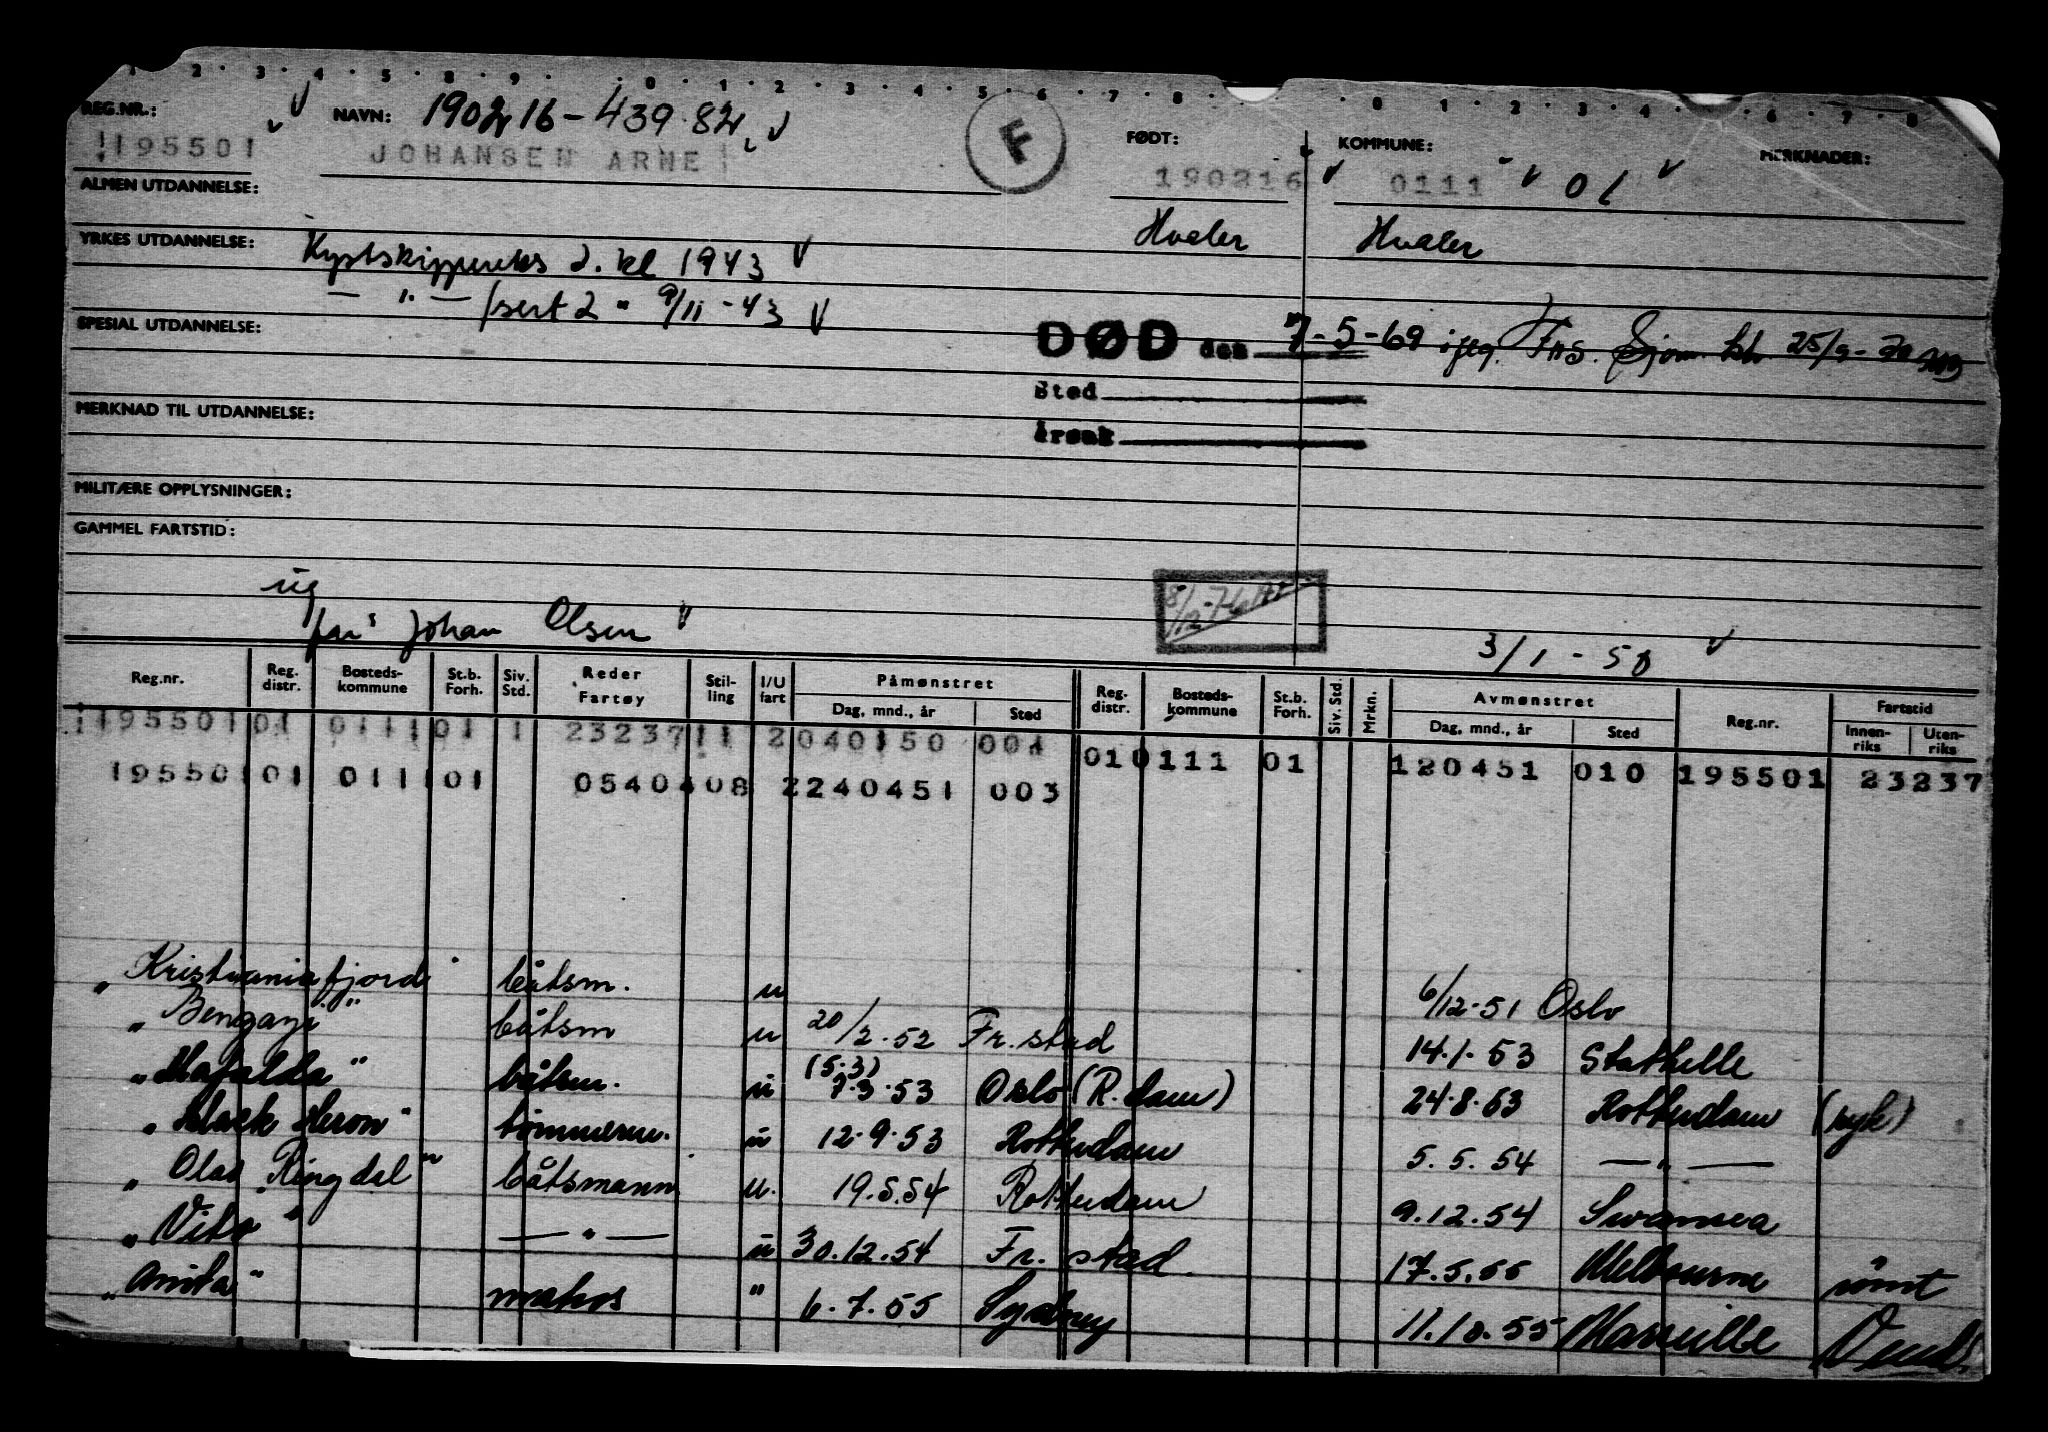 1 · 2 · 3 · 4 · 5 · 8 · 9 · 0 · 1 · 2 · 3 · 4 · 5 · 6 · 7 · 8 · 0 1 · 2 · 3 · 4 · 6 · 7 · 8
REG.NR.: NAVN: 190216-439.82 FØDT: KOMMUNE: MERKNADER:
195501 JOHANSEN ARNE F 190216 0111 01
ALMEN UTDANNELSE:
Hvaler Hvaler
YRKES UTDANNELSE: Kystskippereks 2. kl 1943
— " — sert 2 " 9/11-43
SPESIAL UTDANNELSE:
DØD den 7-5-69 iflg. Frs. Sjøm. 25/9-70
Sted
Årsak
MERKNAD TIL UTDANNELSE:
MILITÆRE OPPLYSNINGER:
GAMMEL FARTSTID:
ug
far: Johan Olsen
3/1-50
Reg.nr. Reg. distr. Bosteds-kommune St.b. Forh. Siv. Std. Reder Fartøy Stil-ling I/U fart Påmønstret Dag, mnd., år Sted Reg. distr. Bosteds-kommune St.b. Forh. Siv. Std. Mrkn. Avmønstret Dag, mnd., år Sted Reg.nr. Fartstid Innen-riks Uten-riks
195501 01 0111 01 1 23237 11 2 040150 004 01 0111 01 120451 010 195501 23237
195501 01 0111 01 0540408 2 240451 003
"Kristianiafjord" båtsm. u 6/12-51 Oslo
"Bengazi" båtsm u 20/2.52 Fr.stad 14.1.53 Stathelle
(5.3)
"Mafalda" båtsm. u 7.3.53 Oslo (R.dam) 24.8.53 Rotterdam (syk)
"Black Heron" tømmerm. u 12.9.53 Rotterdam 5.5.54 — " —
"Olav Ringdal" båtsmann u. 19.5.54 Rotterdam 9.12.54 Swansea
"Vito" — " — u 30.12.54 Fr. stad. 17.5.55 Melbourne rømt
"Anita" matros " 6.7.55 Sydney 11.10.55 Marseille